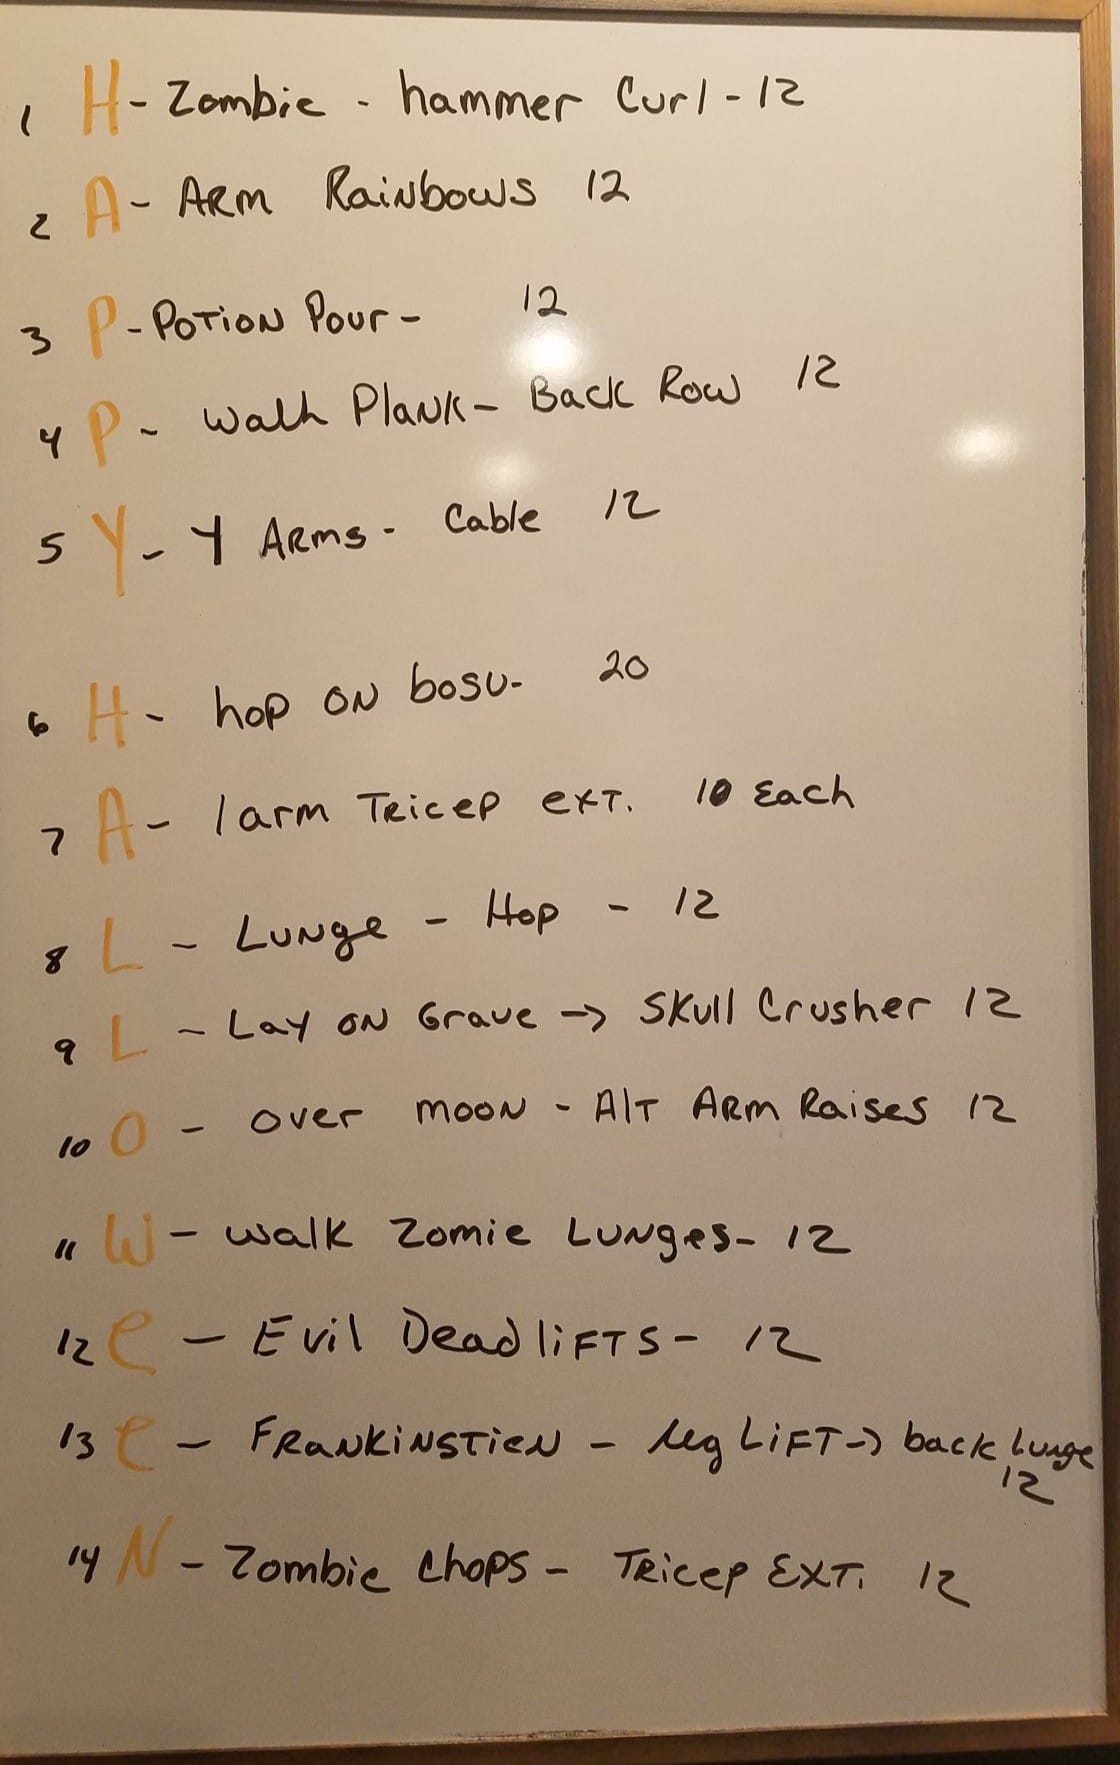 1 H - Zombie - hammer Curl - 12
2 A - ARM Rainbows 12
3 P - Potion Pour - 12
4 P - Walk Plank - Back Row 12
5 Y - Y ARMS - Cable 12
6 H - hop on bosu - 20
7 A - 1 arm Tricep ext. 10 Each
8 L - Lunge - Hop - 12
9 L - Lay on Grave → Skull Crusher 12
10 O - over moon - Alt Arm Raises 12
11 W - walk Zomie Lunges - 12
12 e - Evil Deadlifts - 12
13 e - Frankinstien - leg Lift → back Lunge
12
14 N - Zombie Chops - Tricep EXT. 12